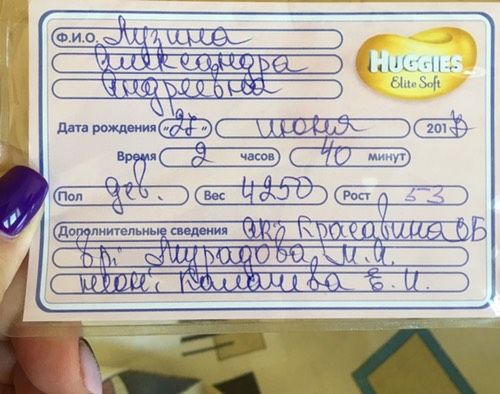 Ф.И.О. Лузина
Александра
Андреевна
HUGGIES
Elite Soft
Дата рождения «27» июня 2017
Время 2 часов 40 минут
Пол дев. Вес 4250 Рост 53
Дополнительные сведения Як: Красавина ВБ
вр: Мурадова М.А.
неон: Калачева Е.И.